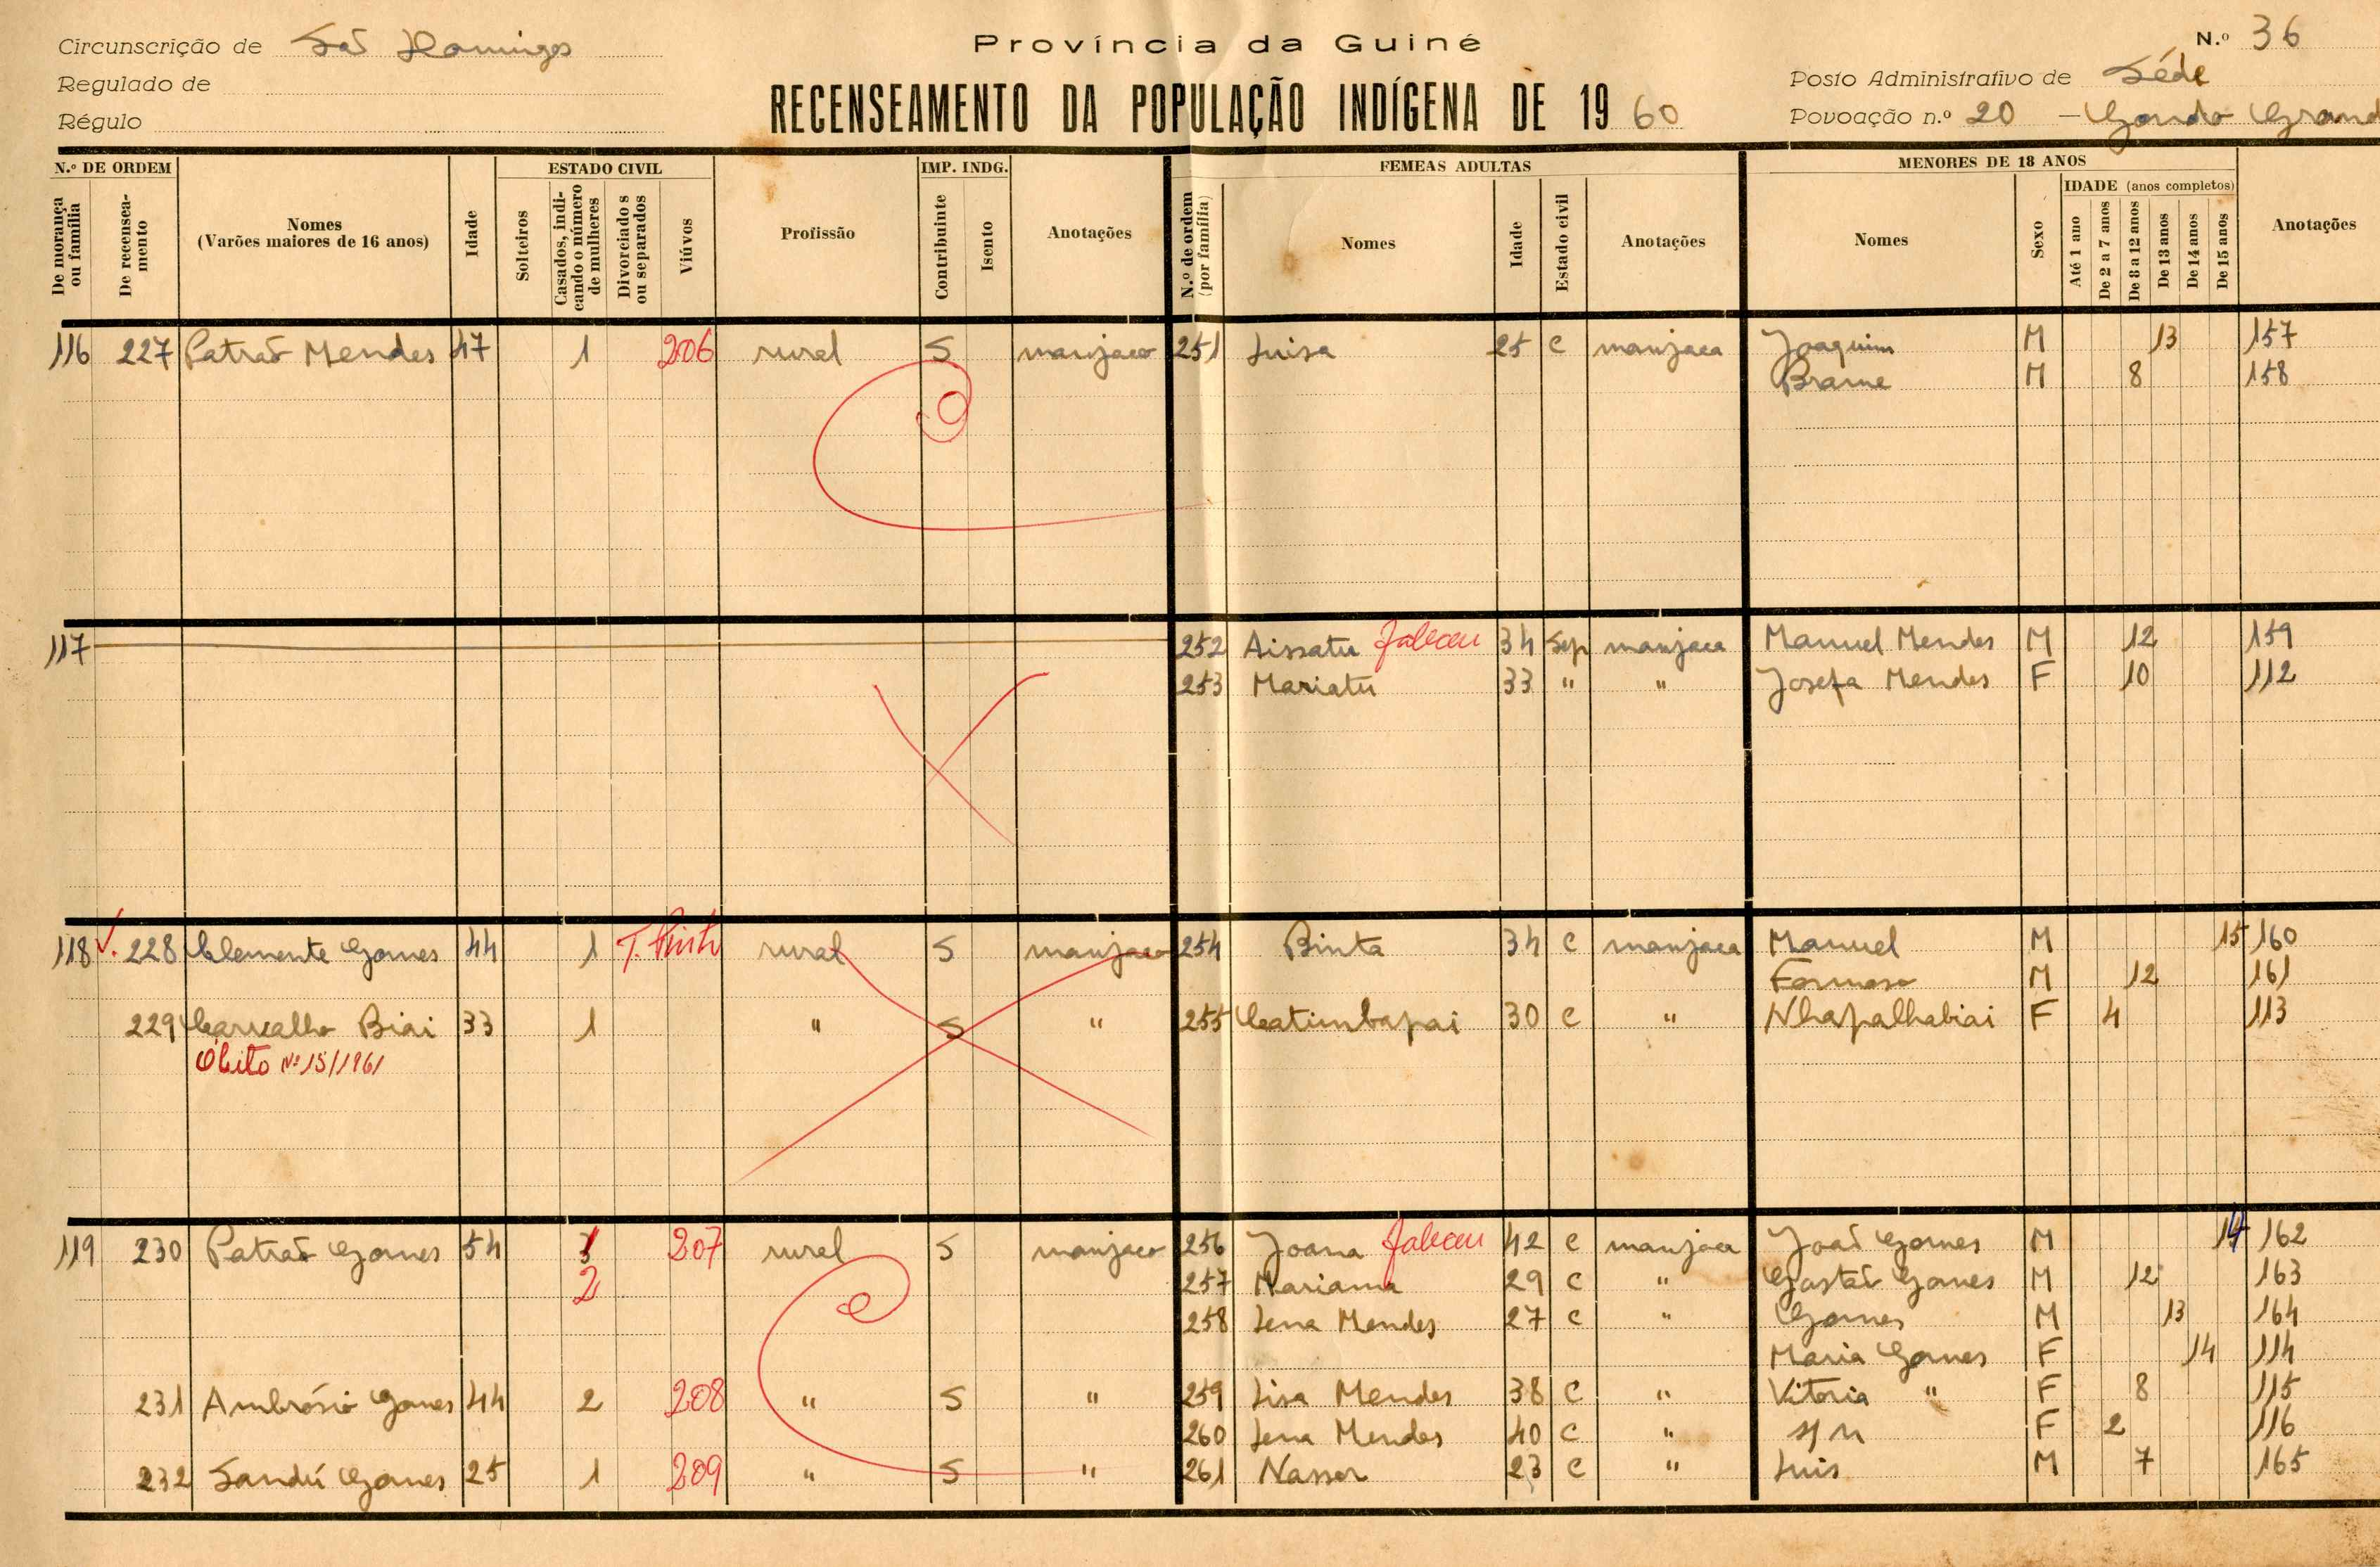 Circunscrição de São Domingos
Província da Guiné
N.º 36
Regulado de
Posto Administrativo de Séde
Régulo
RECENSEAMENTO DA POPULAÇÃO INDÍGENA DE 1960
Povoação n.º 20 - Gendo Grand
N.º DE ORDEM
ESTADO CIVIL
IMP. INDG.
FEMEAS ADULTAS
MENORES DE 18 ANOS
IDADE (anos completos)
De morança ou família
De recenseamento
Nomes (Varões maiores de 16 anos)
Idade
Solteiros
Casados, indicando o número de mulheres
Divorciados ou separados
Viúvos
Profissão
Contribuinte
Isento
Anotações
N.º de ordem (por família)
Nomes
Idade
Estado civil
Anotações
Nomes
Sexo
Até 1 ano
De 2 a 7 anos
De 8 a 12 anos
De 13 anos
De 14 anos
De 15 anos
Anotações
116 227 Patrão Mendes 47 1 206 rural S manjaco 251 Luisa 25 C manjaca Joaquim M 13 157
Brame M 8 158
117 252 Aissatu Faleceu 34 Sep manjaca Manuel Mendes M 12 159
253 Mariatu 33 " " Josefa Mendes F 10 112
118 228 Clemente Gomes 44 1 T. Pinto rural S manjaco 254 Binta 34 C manjaca Manuel M 15 160
Formoso M 12 161
229 Carvalho Biai 33 1 " S " 255 Catimbapai 30 C " Nhapalhabiai F 4 113
Óbito Nº 15/1961
119 230 Patrão Gomes 54 3 207 rural S manjaco 256 Joana Faleceu 42 C manjaca João Gomes M 14 162
2 257 Mariama 29 C " Gastão Gomes M 12 163
258 Lena Mendes 27 C " Gomes M 13 164
Maria Gomes F 14 114
231 Ambrósio Gomes 44 2 208 " S " 259 Lisa Mendes 38 C " Vitoria " F 8 115
260 Lena Mendes 40 C " s/n F 2 116
232 Sandú Gomes 25 1 209 " S " 261 Nasson 23 C " Luis M 7 165